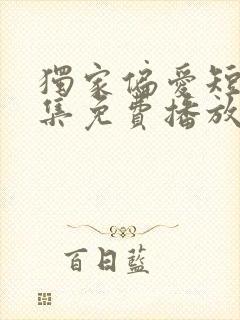 獨家偏愛短
集免費播放
百日藍